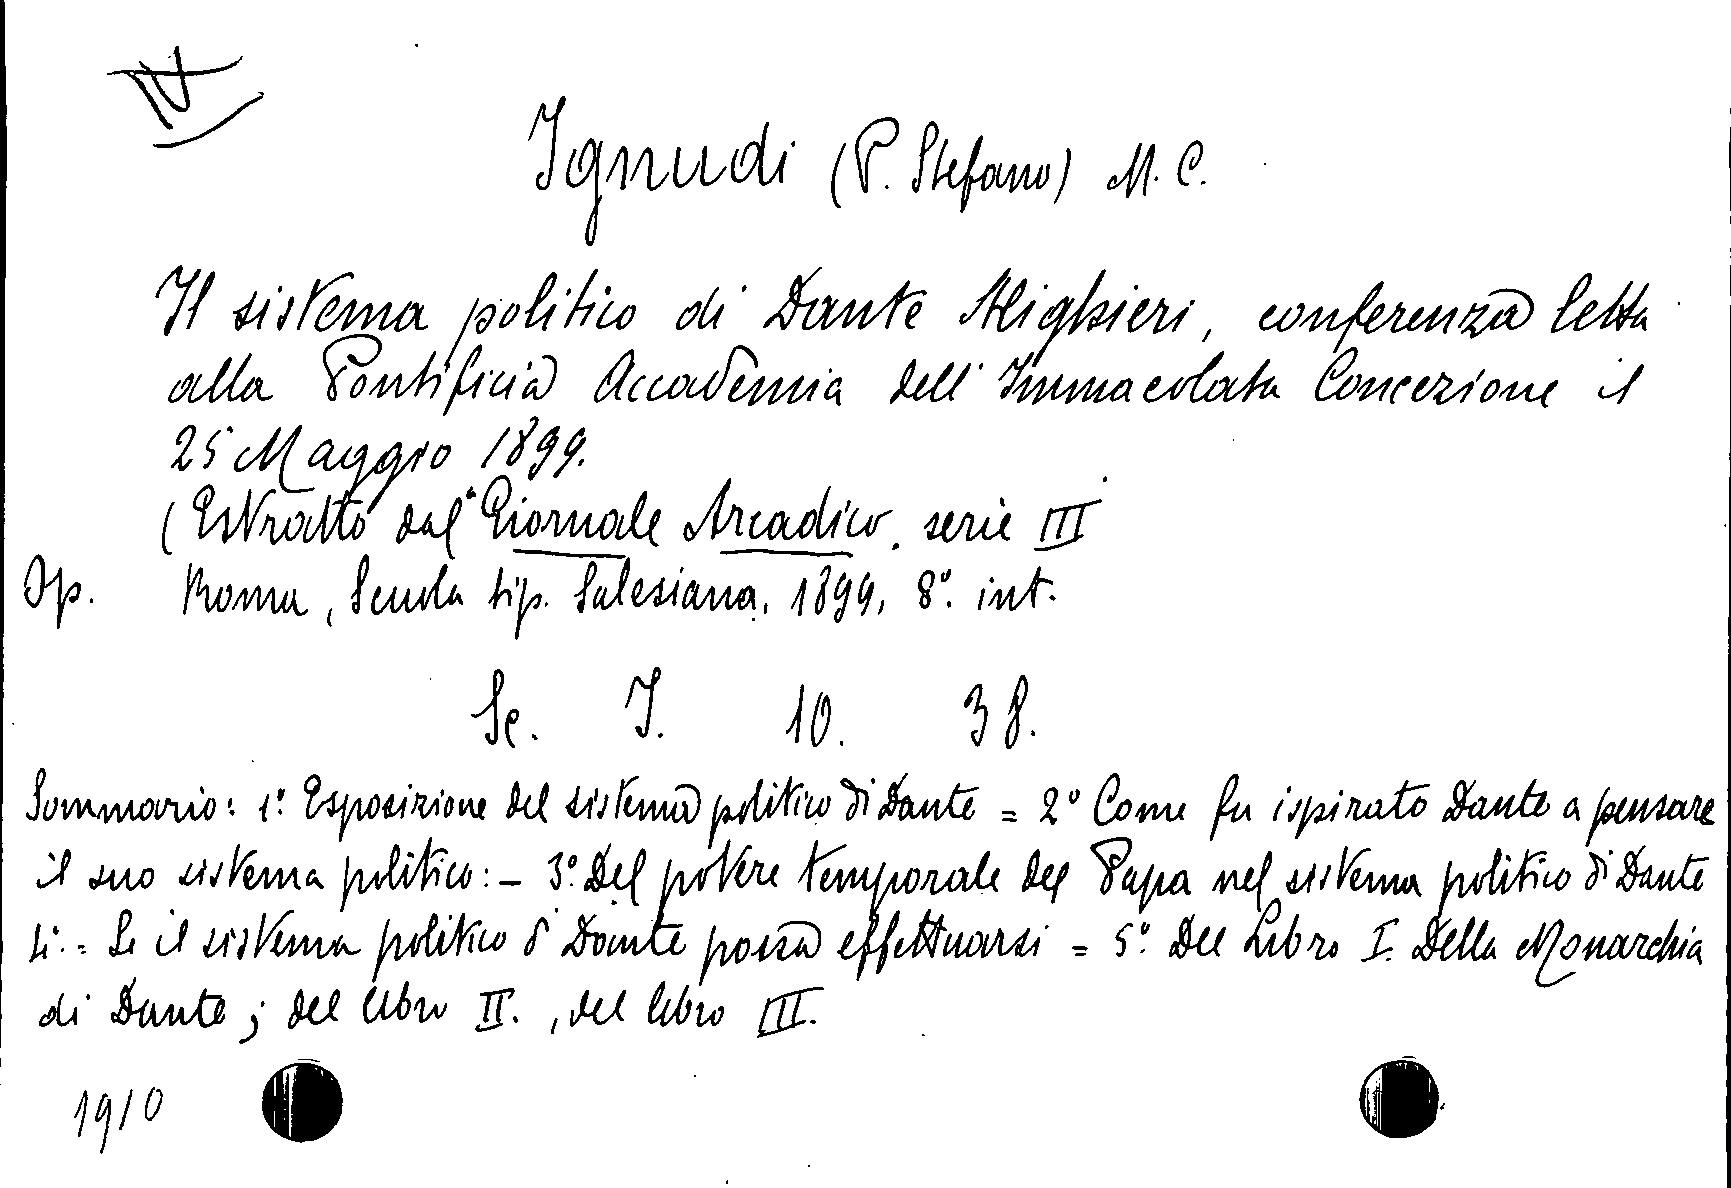 IV
Ignudi (P. Stefano) M. C.
Il sistema politico di Dante Alighieri, conferenza letta
alla Pontificia Accademia dell'Immacolata Concezione il
25 Maggio 1899.
(Estratto dal "Giornale Arcadico. serie III
Op. Roma, Scuola tip. Salesiana, 1899, 8°. int.
Sc. I. 10. 38.
Sommario: 1°. Esposizione del sistema politico di Dante = 2° Come fu ispirato Dante a pensare
il suo sistema politico: - 3°. Del potere temporale del Papa nel sistema politico di Dante
4. = Se il sistema politico di Dante possa effettuarsi = 5°. Del Libro I. Della Monarchia
di Dante; del libro II., del libro III.
1910